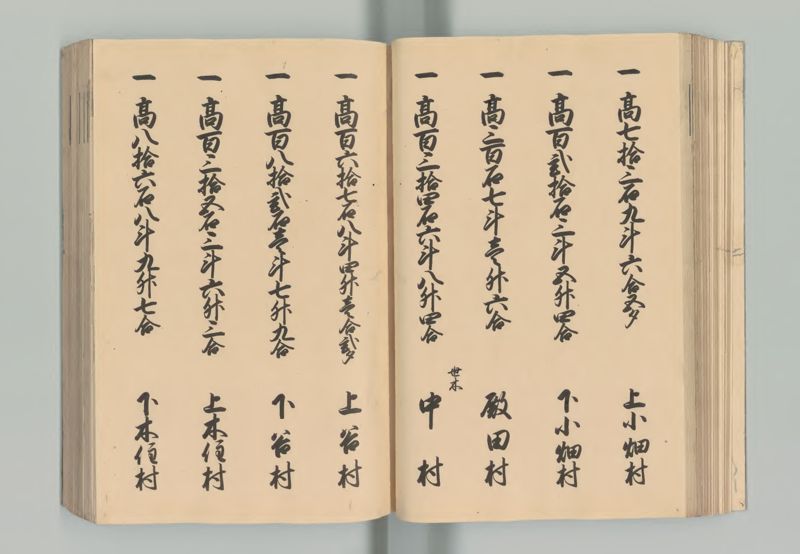 一 高七拾三石九斗六合五夕 上小畑村
一 高百弐拾石三斗五升四合 下小畑村
一 高三百石七斗壱升六合 殿田村
一 高百三拾四石六斗八升四合 世木 中村
一 高百六拾七石八斗四升壱合弐夕 上谷村
一 高百八拾弐石壱斗七升九合 下谷村
一 高百三拾五石三斗六升三合 上木住村
一 高八拾六石八斗九升七合 下木住村